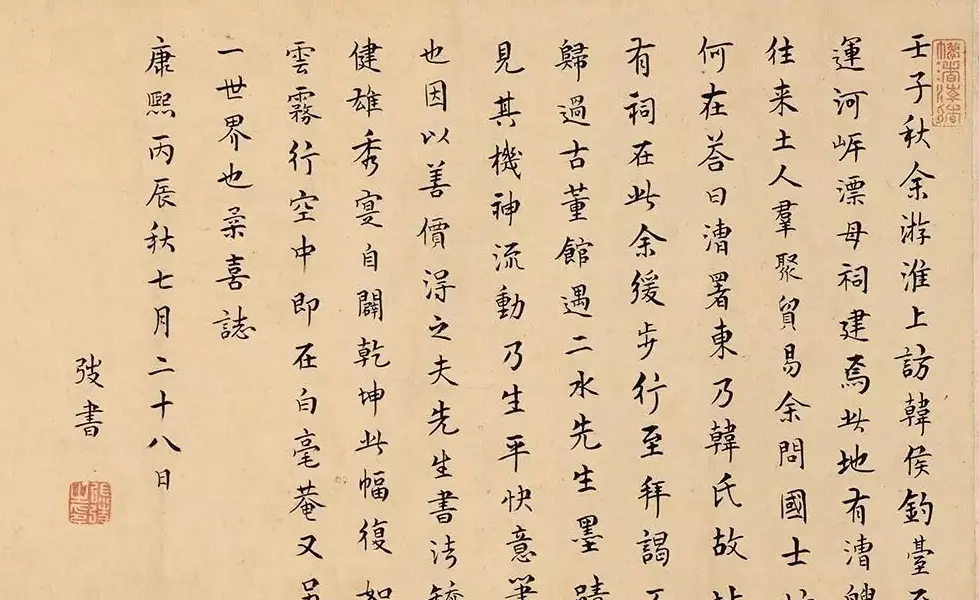 壬子秋余游淮上訪韓侯釣臺至
運河岸漂母祠建焉此地有漕艘
往来土人羣聚貿易余問國士
何在荅曰漕署東乃韓氏故址
有祠在此余緩步行至拜謁
歸過古董館遇二水先生墨蹟
見其機神流動乃生平快意筆
也因以善價淂之夫先生書法
健雄秀寔自闢乾坤此幅復如
雲霧行空中即在白毫菴又另
一世界也柔喜誌
康熙丙辰秋七月二十八日
弢書